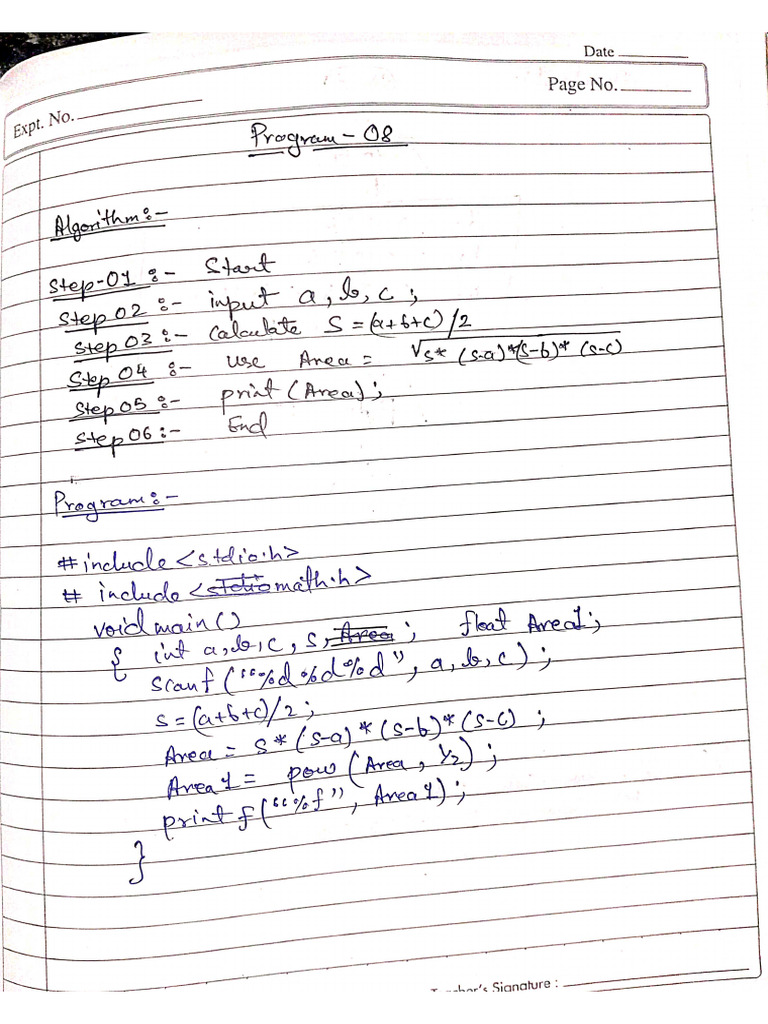 Date
Page No.
Expt. No.
Program - 08
Algorithm:-
Step-01:- Start
Step 02:- input a, b, c ;
Step 03:- calculate S = (a+b+c)/2
Step 04:- use Area = √s* (s-a)*(s-b)* (s-c)
Step 05:- print (Area);
Step 06:- End
Program:-
# include <stdio.h>
# include <stdio math.h>
void main ()
{ int a, b, c, s, Area ; float Area1;
scanf ("%d %d %d", a, b, c) ;
s = (a+b+c)/2 ;
Area = s * (s-a) * (s-b) * (s-c) ;
Area 1 = pow (Area, 1/2) ;
printf ("%f", Area1) ;
}
Teacher's Signature :